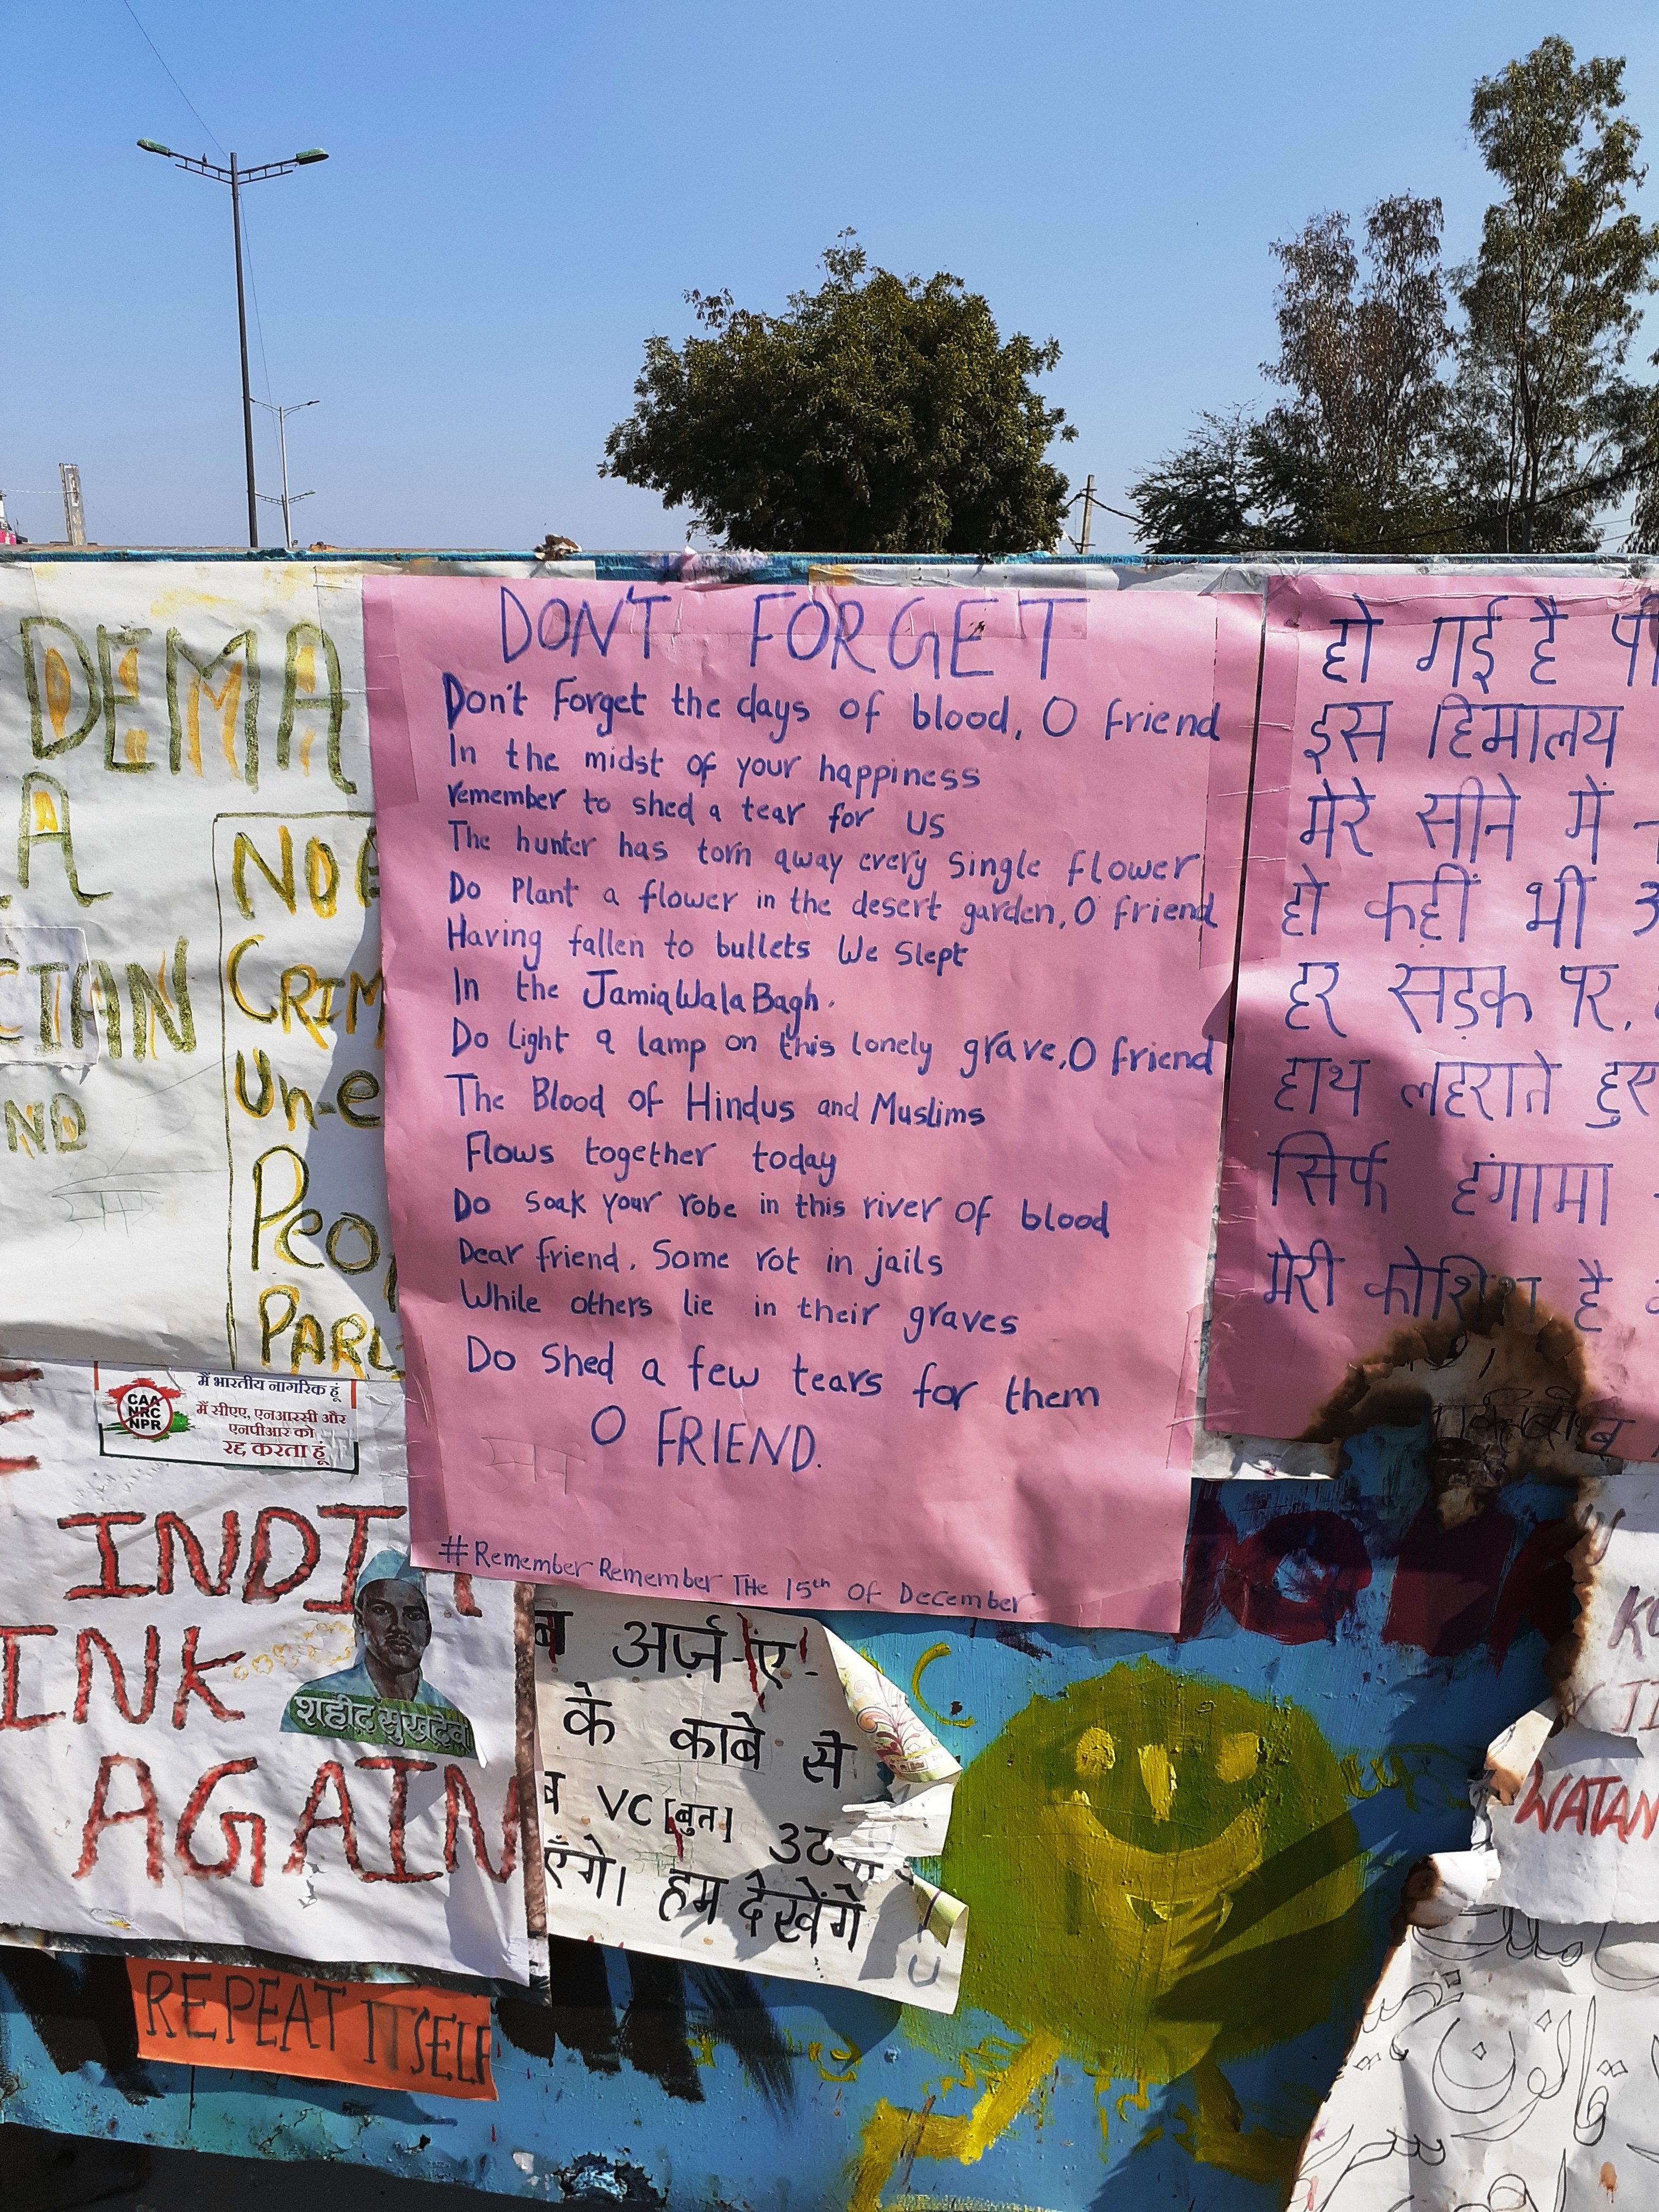 DEMA
A
CTAN
ND
NO
CRIM
Un-e
Peo
PARL
DON'T FORGET
Don't Forget the days of blood, O friend
In the midst of your happiness
remember to shed a tear for us
The hunter has torn away every single flower
Do Plant a flower in the desert garden, O friend
Having fallen to bullets We Slept
In the JamiaWalaBagh.
Do light a lamp on this lonely grave, O friend
The Blood of Hindus and Muslims
Flows together today
Do soak your robe in this river of blood
Dear friend, Some rot in jails
While others lie in their graves
Do Shed a few tears for them
O FRIEND.
#Remember Remember THe 15th OF December
हो गई है
इस हिमालय
मेरे सीने में
हो कहीं भी
हर सड़क पर,
हाथ लहराते हुए
सिर्फ हंगामा
मेरी कोशिश है
CAA
NRC
NPR
मैं भारतीय नागरिक हूं
मैं सीएए, एनआरसी और
एनपीआर को
रद्द करता हूं
INDIA
INK
AGAIN
शहीद सुखदेव
REPEAT ITSELF
ब अर्ज़-ए-
के काबे से
ब VC [बुत]
एँगे। हम देखेंगे
WATAN